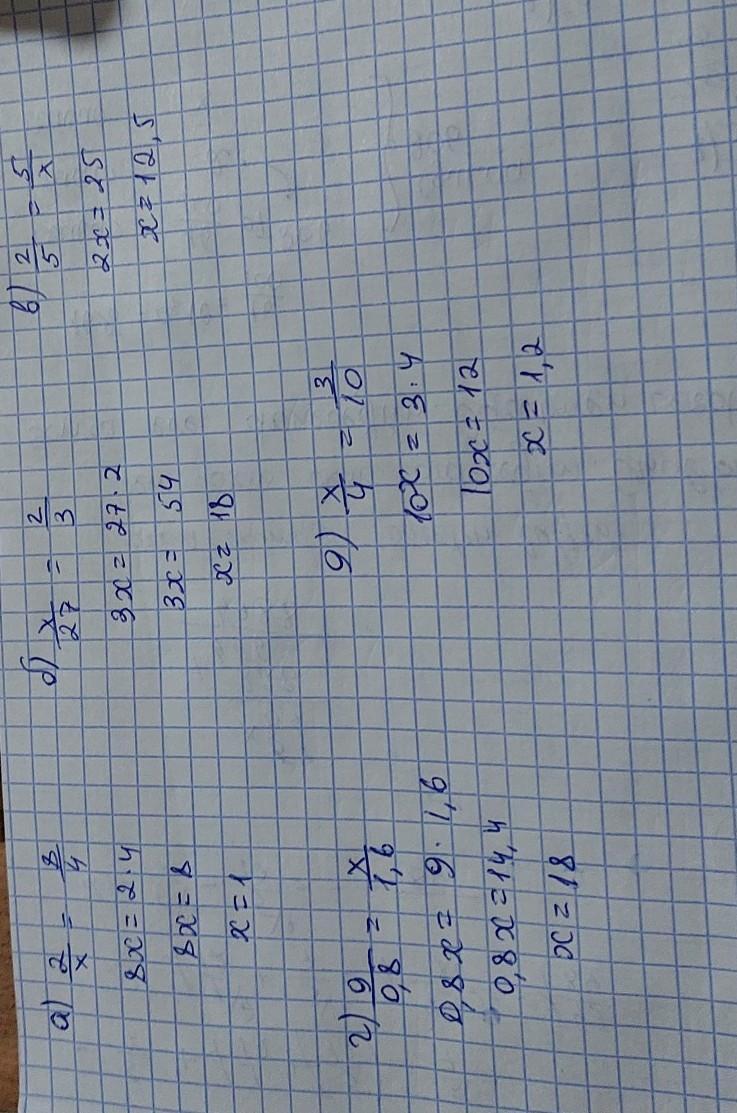 а) 2/x = 8/4
8x = 2·4
8x = 8
x = 1
б) x/27 = 2/3
3x = 27·2
3x = 54
x = 18
в) 2/5 = 5/x
2x = 25
x = 12,5
г) 9/0,8 = x/1,6
0,8x = 9·1,6
0,8x = 14,4
x = 18
д) x/4 = 3/10
10x = 3·4
10x = 12
x = 1,2